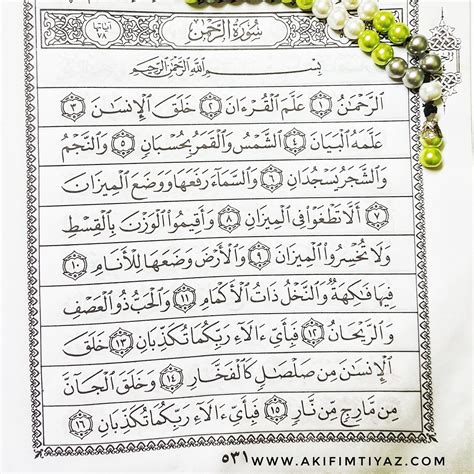 سُورَةُ الرَّحْمٰن
آيَاتُهَا ٧٨
بِسْمِ اللَّهِ الرَّحْمَٰنِ الرَّحِيمِ
الرَّحْمَٰنُ ١ عَلَّمَ الْقُرْءَانَ ٢ خَلَقَ الْإِنسَٰنَ ٣
عَلَّمَهُ الْبَيَانَ ٤ الشَّمْسُ وَالْقَمَرُ بِحُسْبَانٍ ٥ وَالنَّجْمُ
وَالشَّجَرُ يَسْجُدَانِ ٦ وَالسَّمَآءَ رَفَعَهَا وَوَضَعَ الْمِيزَانَ
٧ أَلَّا تَطْغَوْا فِي الْمِيزَانِ ٨ وَأَقِيمُوا الْوَزْنَ بِالْقِسْطِ
وَلَا تُخْسِرُوا الْمِيزَانَ ٩ وَالْأَرْضَ وَضَعَهَا لِلْأَنَامِ ١٠
فِيهَا فَٰكِهَةٌ وَالنَّخْلُ ذَاتُ الْأَكْمَامِ ١١ وَالْحَبُّ ذُو الْعَصْفِ
وَالرَّيْحَانُ ١٢ فَبِأَيِّ ءَالَآءِ رَبِّكُمَا تُكَذِّبَانِ ١٣ خَلَقَ
الْإِنسَٰنَ مِن صَلْصَٰلٍ كَالْفَخَّارِ ١٤ وَخَلَقَ الْجَآنَّ
مِن مَّارِجٍ مِّن نَّارٍ ١٥ فَبِأَيِّ ءَالَآءِ رَبِّكُمَا تُكَذِّبَانِ ١٦
٥٣١
WWW.AKIFIMTIYAZ.COM